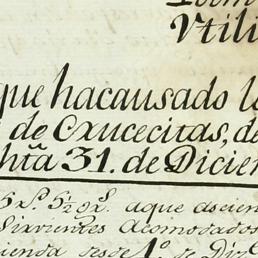 Utili
que hacausado l
de Cxucecitas, de
hta 31. de Dicien
5 xs. 5 1/2 gxs. a que ascien
Sirvientes Acomodados
ienda desde 1º. de Diz